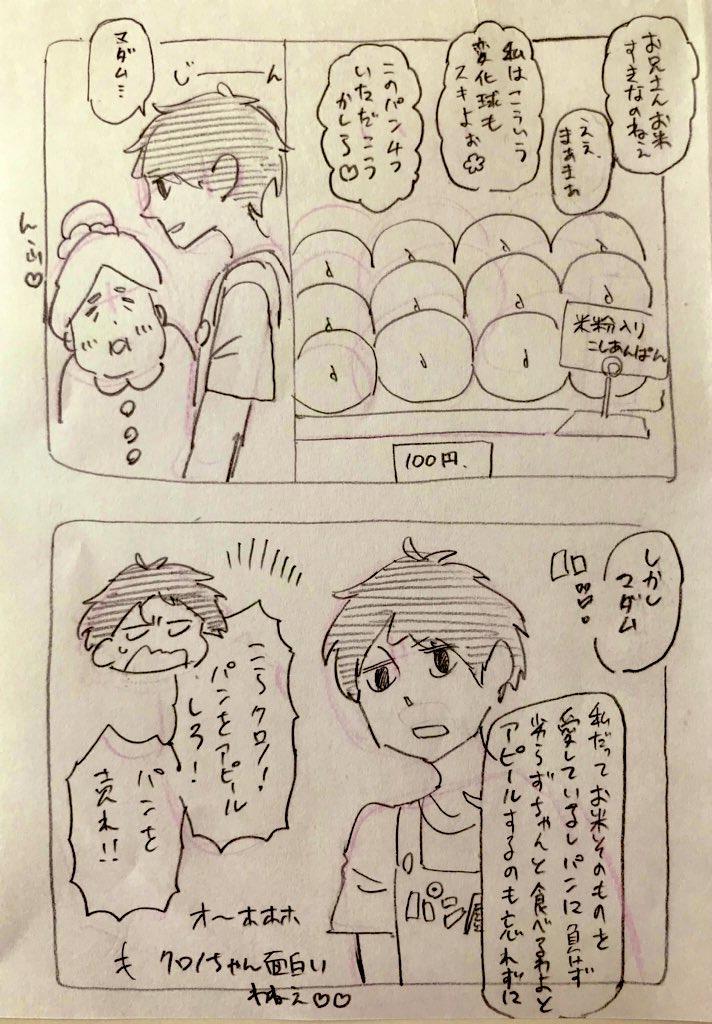 お兄さんお米
すきなのねぇ
ええ、
まあまあ
私はこういう
変化球も
スキよぉ
このパン4つ
いただこう
かしら♡
米粉入り
こしあんぱん
100円、
じーーん
マダム…
んふ♡
しかし
マダム
私だってお米そのものを
愛しているしパンに負けず
劣らずちゃんと食べてるわよと
アピールするのも忘れずに
パン屋
こらクロノ!
パンをアピール
しろ!
パンを
売れ!!
オ〜ホホホ
クロノちゃん面白い
わねぇ♡♡